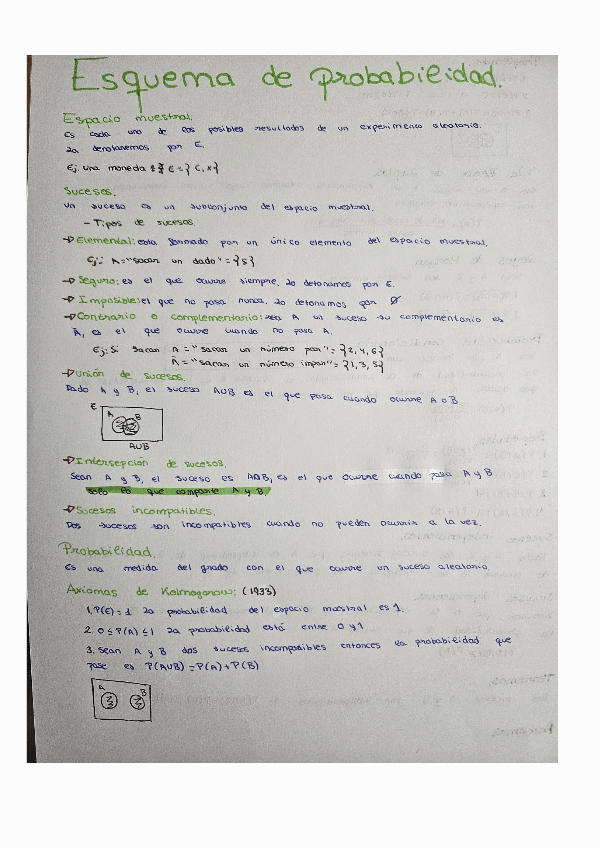 Esquema de probabilidad.
Espacio muestral.
Es cada uno de los posibles resultados de un experimento aleatorio.
Lo denotaremos por E.
Ej: una moneda E = {C, X}
Sucesos.
Un suceso es un subconjunto del espacio muestral.
- Tipos de sucesos
→ Elemental: esta formado por un único elemento del espacio muestral.
Ej: A="sacar un dado" = {5}
→ Seguro: es el que ocurre siempre. Lo detonamos por E.
→ Imposible: el que no pasa nunca. Lo detonamos por Ø
→ Contrario o complementario: sea A un suceso su complementario es
Ā, es el que ocurre cuando no pasa A.
Ej: Si sacan A = "sacar un número par" = {2, 4, 6}
Ā = "sacar un número impar" = {1, 3, 5}
→ Unión de sucesos.
Dado A y B, el suceso AUB es el que pasa cuando ocurre A o B
E
A B
AUB
→ Intersepción de sucesos.
Sean A y B, el suceso es A∩B, es el que ocurre cuando pasa A y B
Solo lo que comparte A y B
→ Sucesos incompatibles.
Dos sucesos son incompatibles cuando no pueden ocurrir a la vez.
Probabilidad.
Es una medida del grado con el que ocurre un suceso aleatorio.
Axiomas de Kolmogorow: (1933)
1. P(E) = 1 La probabilidad del espacio mastral es 1.
2. 0 ≤ P(A) ≤ 1 La probabilidad está entre 0 y 1
3. Sean A y B dos sucesos incomposibles entonces la probabilidad que
pase es P(AUB) = P(A) + P(B)
A B